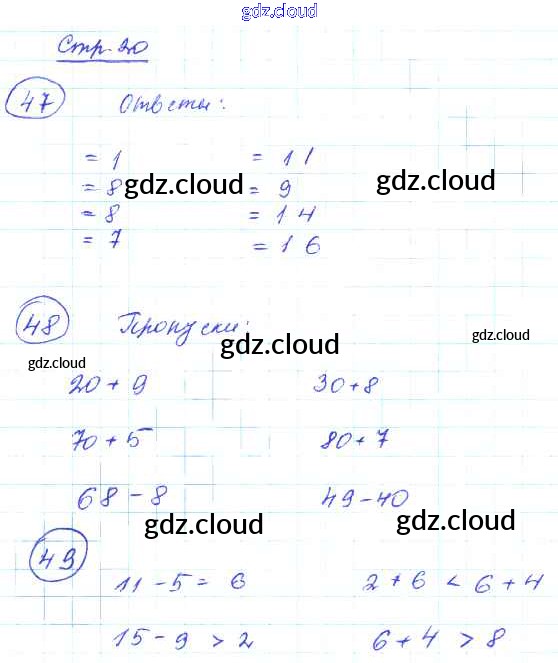 gdz.cloud
Стр. 20
47 Ответы:
= 1 = 11
= 8 gdz.cloud = 9 gdz.cloud
= 8 = 14
= 7 = 16
48 Пропуски:
gdz.cloud gdz.cloud gdz.cloud
20 + 9 30 + 8
70 + 5 80 + 7
68 - 8 49 - 40
gdz.cloud gdz.cloud
49
11 - 5 = 6 2 + 6 < 6 + 4
15 - 9 > 2 6 + 4 > 8